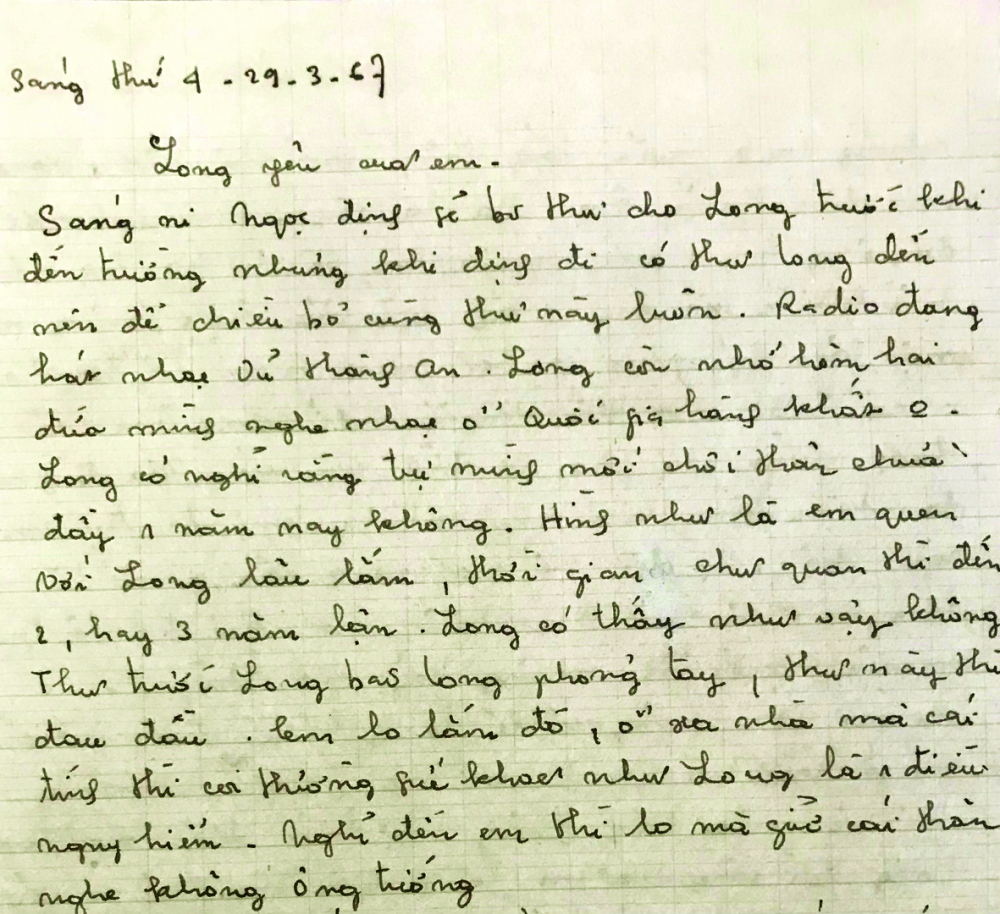 Sáng thứ 4 - 29.3.67
Long yêu của em.
Sáng ni Ngọc định sẽ bỏ thư cho Long trước khi
đến trường nhưng khi định đi có thư Long đến
nên để chiều bỏ cùng thư này luôn. Radio đang
hát nhạc Vũ Thành An. Long còn nhớ hôm hai
đứa mình nghe nhạc ở Quốc gia hàng khát e.
Long có nghĩ rằng tụi mình mới chơi thân chưa
đầy 1 năm nay không. Hình như là em quen
với Long lâu lắm, thời gian như quen thì đến
2, hay 3 năm lận. Long có thấy như vậy không
Thư trước Long bảo Long phỏng tay, thư này thì
đau đầu. Em lo lắm đó, ở xa nhà mà cái
tính thì coi thường sức khoẻ như Long là 1 điều
nguy hiểm - Nghĩ đến em thì lo mà giữ cái thân
nghe không ông tướng